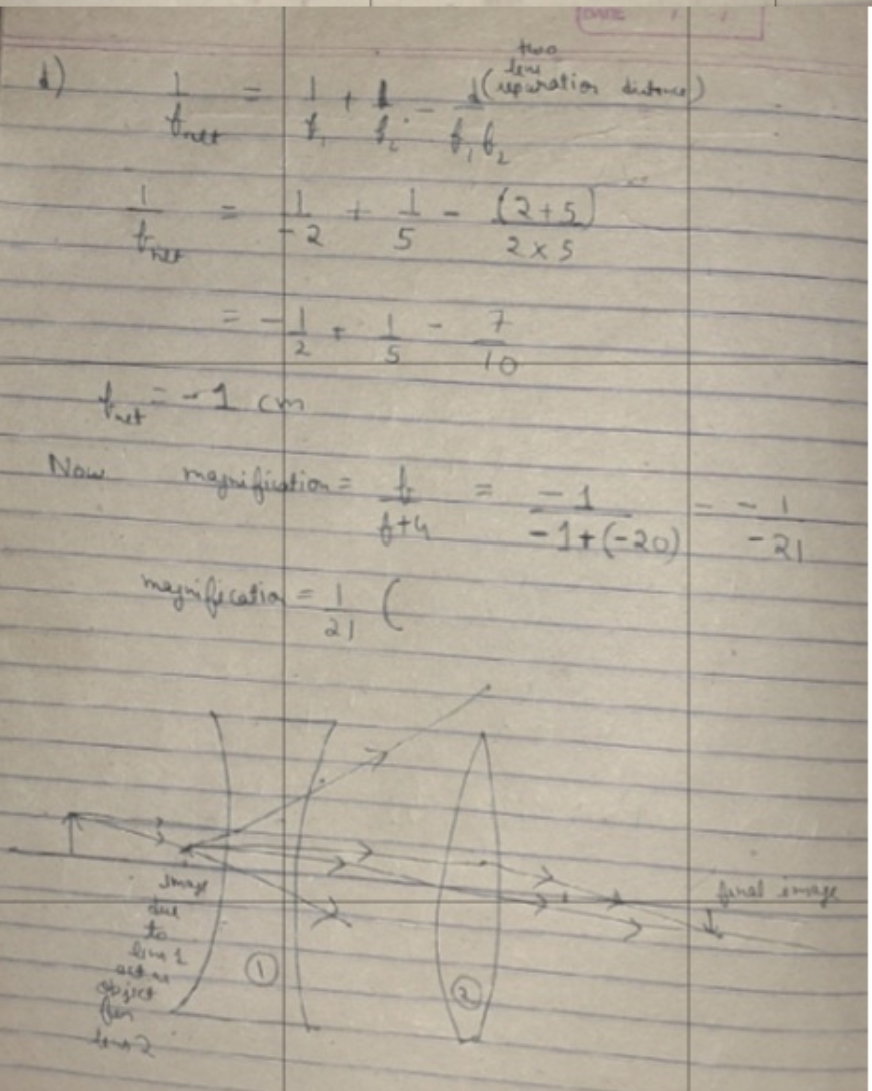 DATE
d)
1/f_net = 1/f_1 + 1/f_2 - d (two lens separation distance)/f_1 f_2
1/f_net = 1/-2 + 1/5 - (2+5)/2×5
= -1/2 + 1/5 - 7/10
f_net = -1 cm
Now magnification = f/f+u = -1/-1+(-20) = -1/-21
magnification = 1/21 (
image
due
to
lens 1
act as
object
for
lens 2
①
②
final image